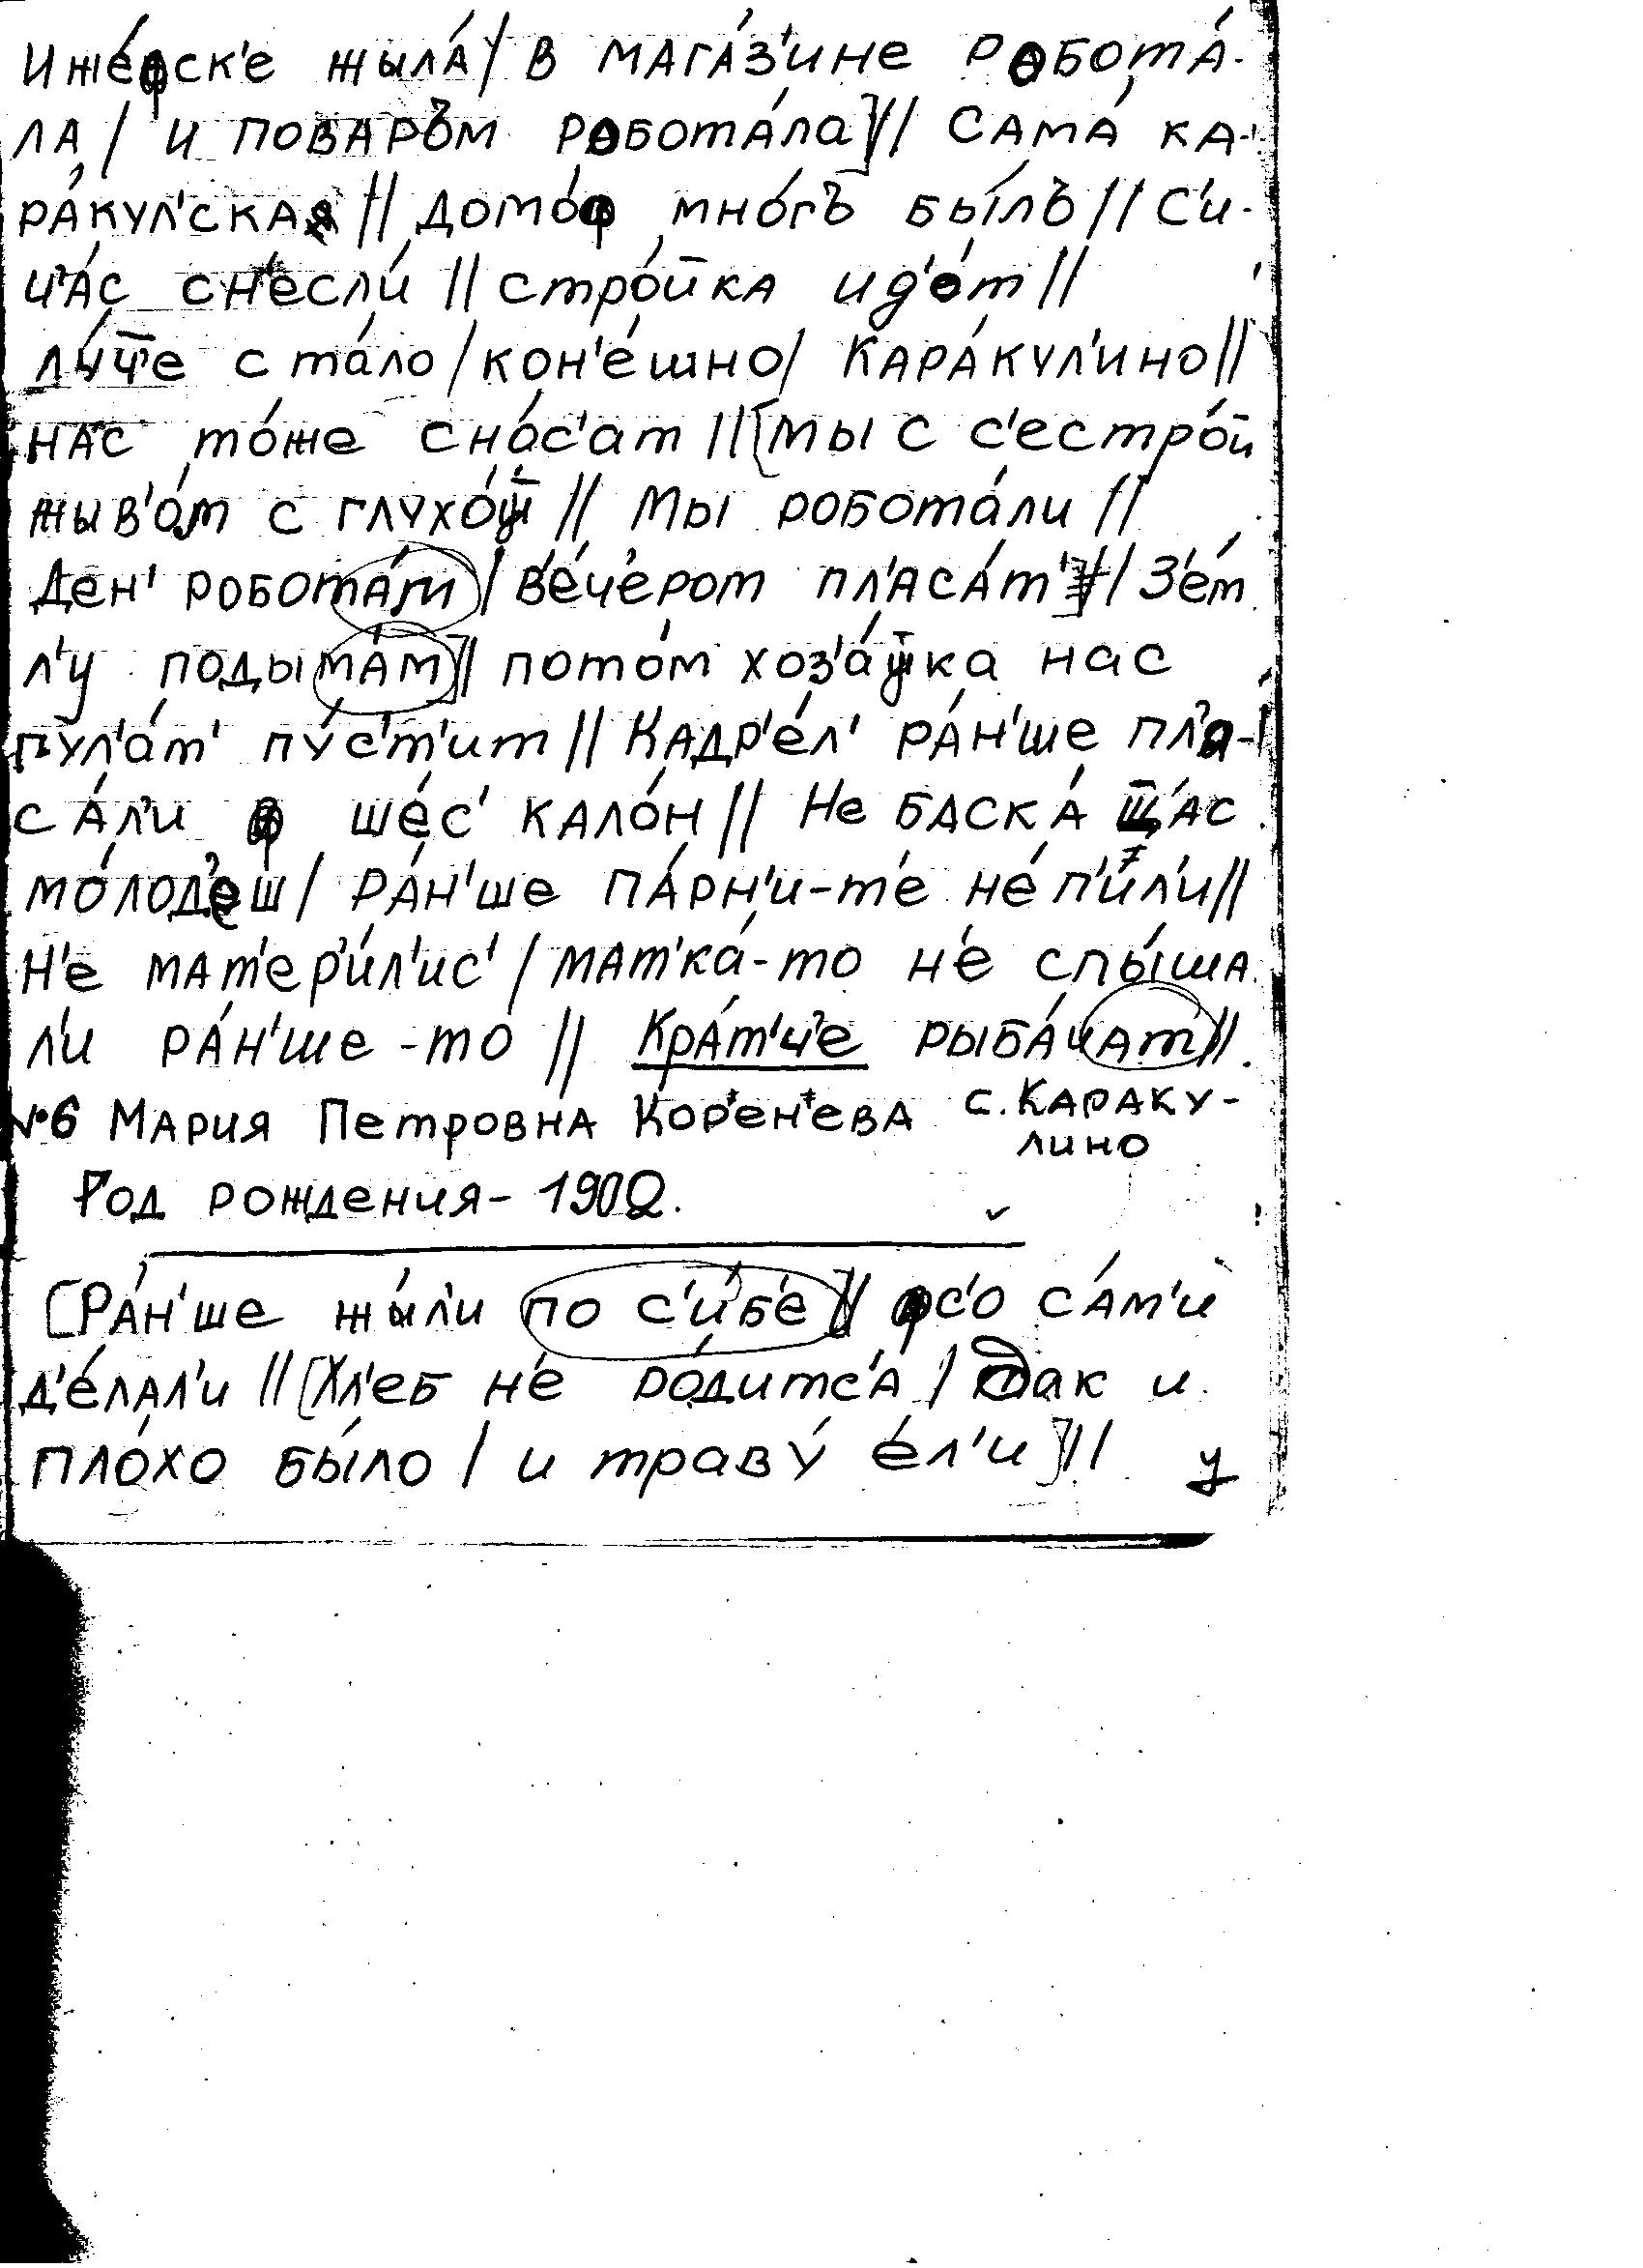 ижéфск'е жылá / в магáз'ине роботá-
ла / и поваръм роботáла] // Самá ка-
рáкул'ская // домóф мнóгъ бы́лъ // С'и-
ч'áс сн'если́ // стрóйка ид'óт //
лу́ч̅'е стáло / кон'éшно / Карáкул'ино //
нас тóже снóс'ат // [мы с с'естрóй
жыв'óм с глухóй // Мы роботáли //
Ден' роботáм / в'éч'ером пл'асáт' // З'éм
л'у подымáм] // потóм хоз'áйка нас
гул'áт' пу́с'т'ит // Кадр'éл' рáн'ше пл'а-
сáл'и ф шéс' калóн // Не баскá щ̅áс
мóлод'еш / рáн'ше пáрн'и-т'е нé п'ил'и //
Н'е мат'ер'и́л'ис' / мат'кá-то н'е слы́ша
л'и рáн'ше-то // Крáт'ч'е рыбáчат //
№6 Мария Петровна Кор'ен'ева с. Караку-
лино
Год рождения - 1902.
[Рáн'ше жы́л'и по с'иб'é] // фс'о сáм'и
д'éлал'и // [Хл'еб н'е рóдитс'а / дак и
плóхо бы́ло / и траву́ éл'и] // у